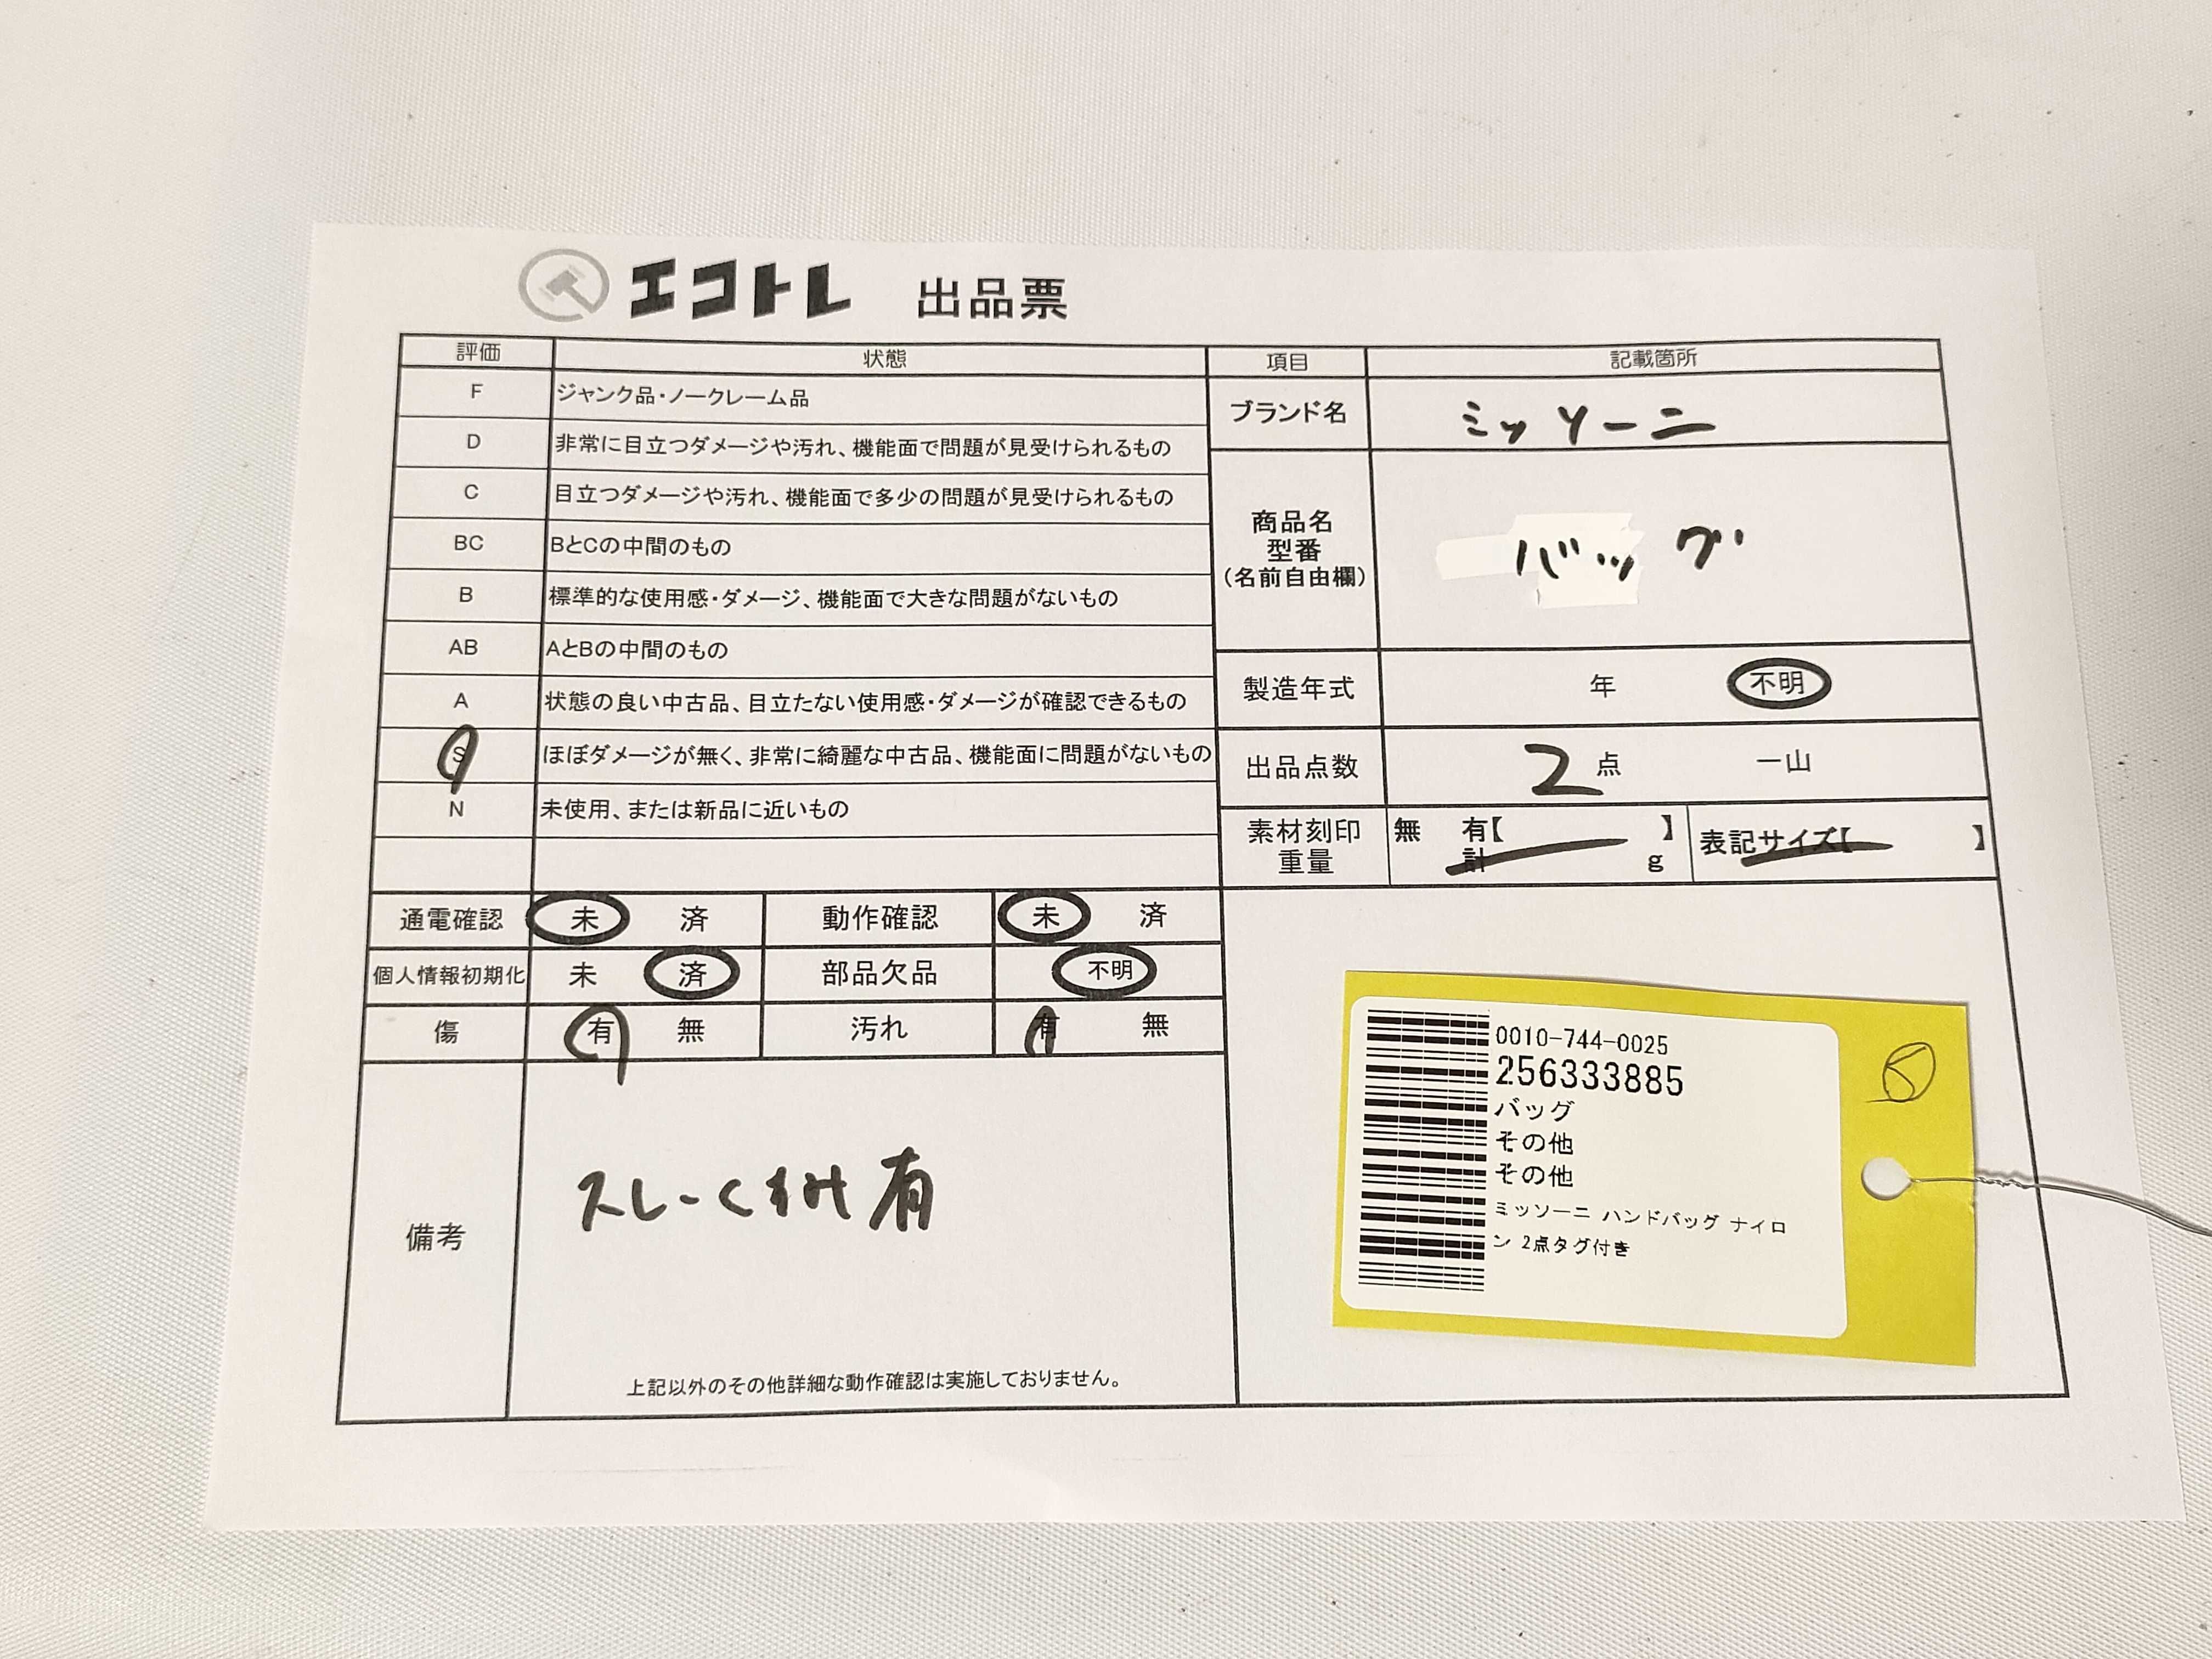 エコトレ 出品票
評価 状態 項目 記載箇所
F ジャンク品・ノークレーム品
D 非常に目立つダメージや汚れ、機能面で問題が見受けられるもの
C 目立つダメージや汚れ、機能面で多少の問題が見受けられるもの
BC BとCの中間のもの
B 標準的な使用感・ダメージ、機能面で大きな問題がないもの
AB AとBの中間のもの
A 状態の良い中古品、目立たない使用感・ダメージが確認できるもの
S ほぼダメージが無く、非常に綺麗な中古品、機能面に問題がないもの
N 未使用、または新品に近いもの
ブランド名 ミッソーニ
商品名
型番
(名前自由欄)
バッグ
製造年式 年 不明
出品点数 2点 一山
素材刻印
重量
無 有【 】
計 g
表記サイズ【 】
通電確認 未 済 動作確認 未 済
個人情報初期化 未 済 部品欠品 不明
傷 有 無 汚れ 有 無
備考
有
上記以外のその他詳細な動作確認は実施しておりません。
0010-744-0025
256333885
バッグ
その他
その他
ミッソーニ ハンドバッグ ナイロ
ン 2点タグ付き